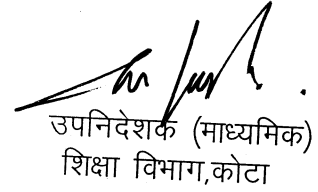 उपनिदेशक (माध्यमिक)
शिक्षा विभाग,कोटा